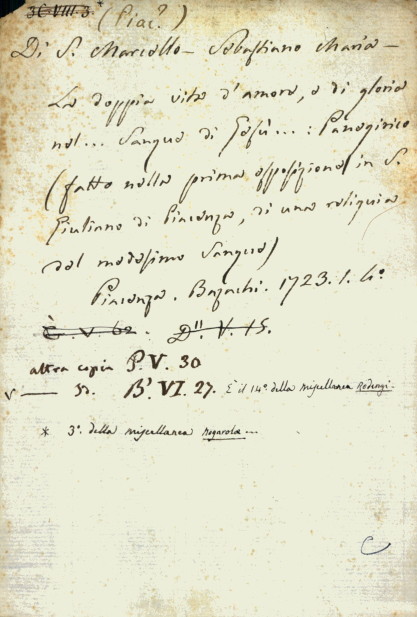 3C VIII. 3* (Piac.?)
Di S. Marcello - Sebastiano Maria -
La doppia vita d'amore, e di gloria
nel... Sangue di Gesù...: Panegirico
(fatto nella prima esposizione in S.
Giuliano di Piacenza, di una reliquia
del medesimo Sangue)
Piacenza. Bazachi. 1723. 1. 4º
C. V. 62. D". V. 15.
altra copia P. V. 30
v — Id. B'. VI. 27. È il 14º. della miscellanea
* 3º. della miscellanea Nogarola —